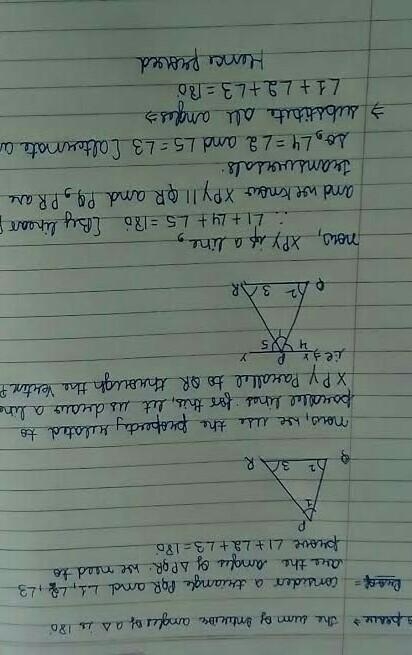 prove ⇒ The sum of interior angles of a Δ is 180
Proof = consider a triangle PQR and ∠1, ∠2, ∠3
are the angles of ΔPQR. we need to
prove ∠1 + ∠2 + ∠3 = 180
P
1
Q 2 3 R
now, we use the property related to
parallel lines. for this, let us draw a line
XPY Parallel to QR through the Vertex P
i.e ⇒ X P Y
4 1 5
Q 2 3 R
now, XPY is a line,
∴ ∠1 + ∠4 + ∠5 = 180 [By linear
and we know XPY || QR and PQ, PR are
transversals.
so, ∠4 = ∠2 and ∠5 = ∠3 [alternate
⇒ substitute all angles ⇒
∠1 + ∠2 + ∠3 = 180
Hence proved